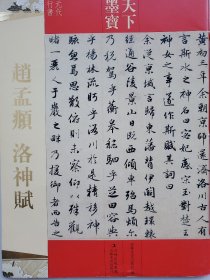 天下墨寶
元代
行書
趙孟頫 洛神賦
黃初三年余朝京師還濟洛川古人有
言斯水之神名曰宓妃感宋玉對楚王
神女之事遂作斯賦其詞曰
余從京域言歸東藩背伊闕越轘轅
經通谷陵景山日既西傾車殆馬煩爾
乃稅駕乎蘅皋秣駟乎芝田容與
乎楊林流眄乎洛川於是精移神
駭忽焉思散俯則未察仰以殊觀
睹一麗人于巖之畔乃援御者而告之